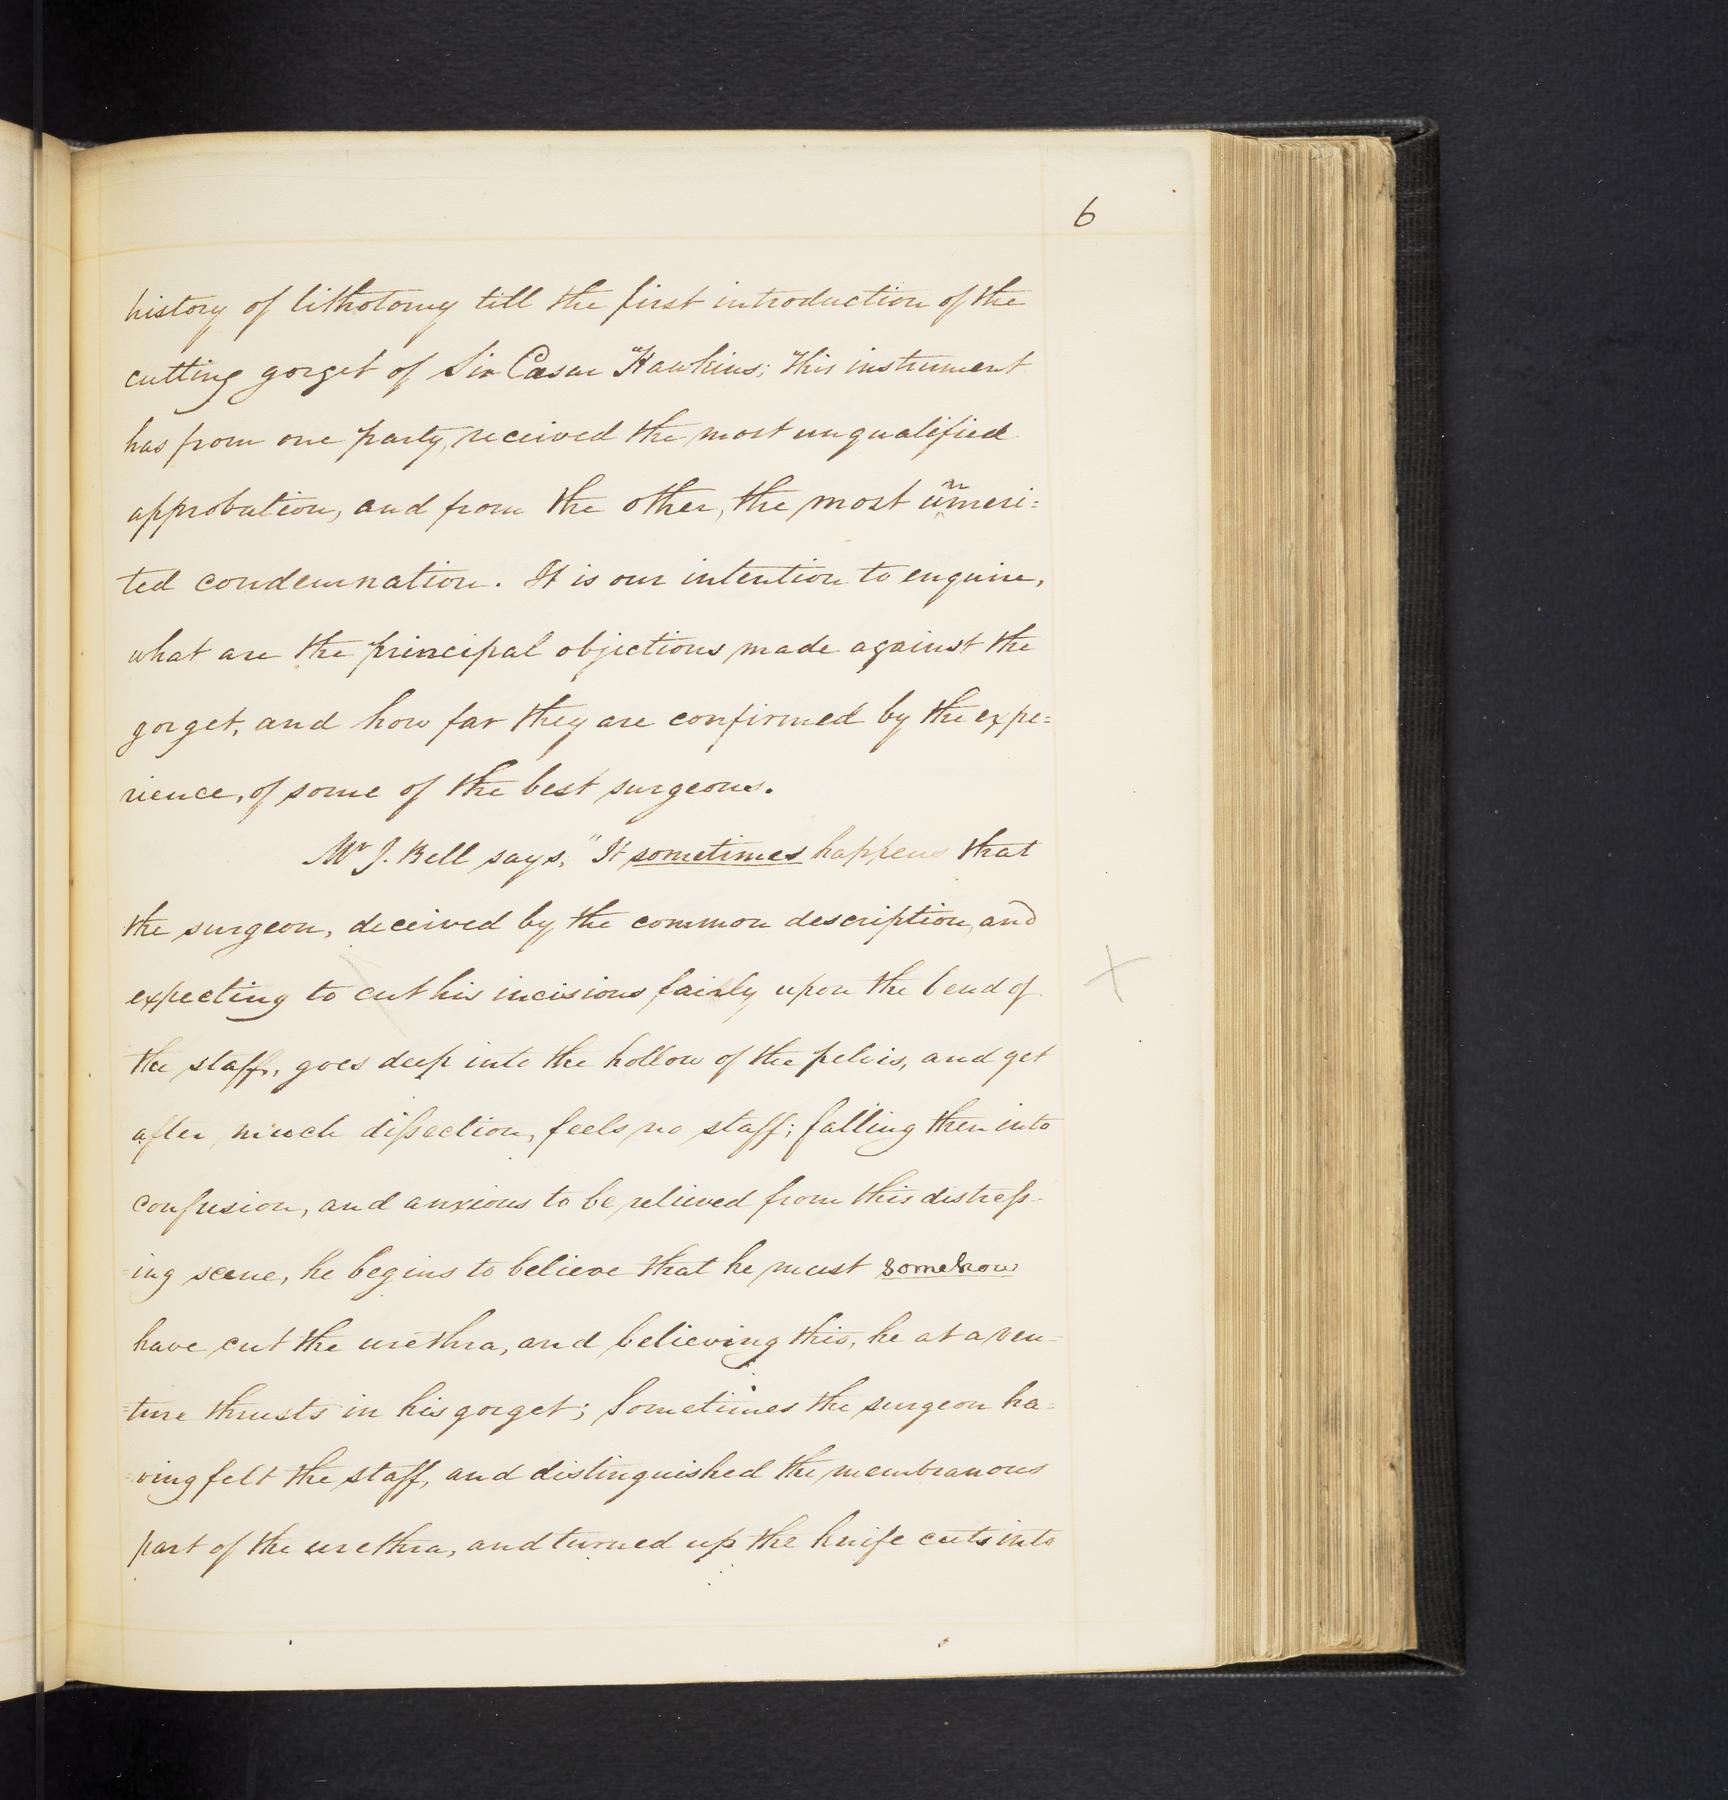 6
history of lithotomy till the first introduction of the
cutting gorget of Sir Cæsar Hawkins; this instrument
has from one party, received the most unqualified
approbation, and from the other, the most unmeri=
ted condemnation. It is our intention to enquire,
what are the principal objections made against the
gorget, and how far they are confirmed by the expe=
rience, of some of the best surgeons.
Mr J. Bell says, "It sometimes happens that
the surgeon, deceived by the common description, and
expecting to cut his incisions fairly upon the bend of
the staff, goes deep into the hollow of the pelvis, and yet
after much dissection, feels no staff; falling then into
confusion, and anxious to be relieved from this distress-
=ing scene, he begins to believe that he must somehow
have cut the urethra, and believing this, he at a ven=
=ture thrusts in his gorget; Sometimes the surgeon ha=
=ving felt the staff, and distinguished the membranous
part of the urethra, and turned up the knife cuts into